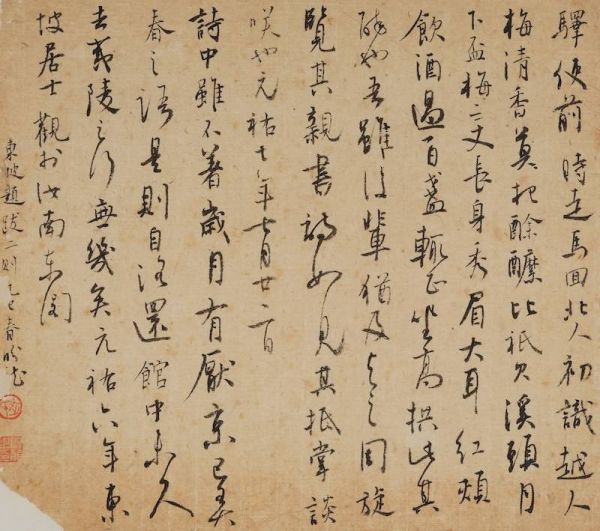 驛使前時走馬回北人初識越人
梅清香莫把酴醾比衹欠溪頭月
下盃梅二丈長身秀眉大耳紅頰
飲酒過百盞輒正坐高拱此其
醉也吾雖後輩猶及與之周旋
覽其親書詩如見其抵掌談
咲也元祐七年七月廿二日
詩中雖不著歲月有厭京已弄
春之語是則自洛還館中未久
去夷陵之行無幾矣元祐六年東
坡居士觀於汝南東閣
東坡題跋二則乙巳春